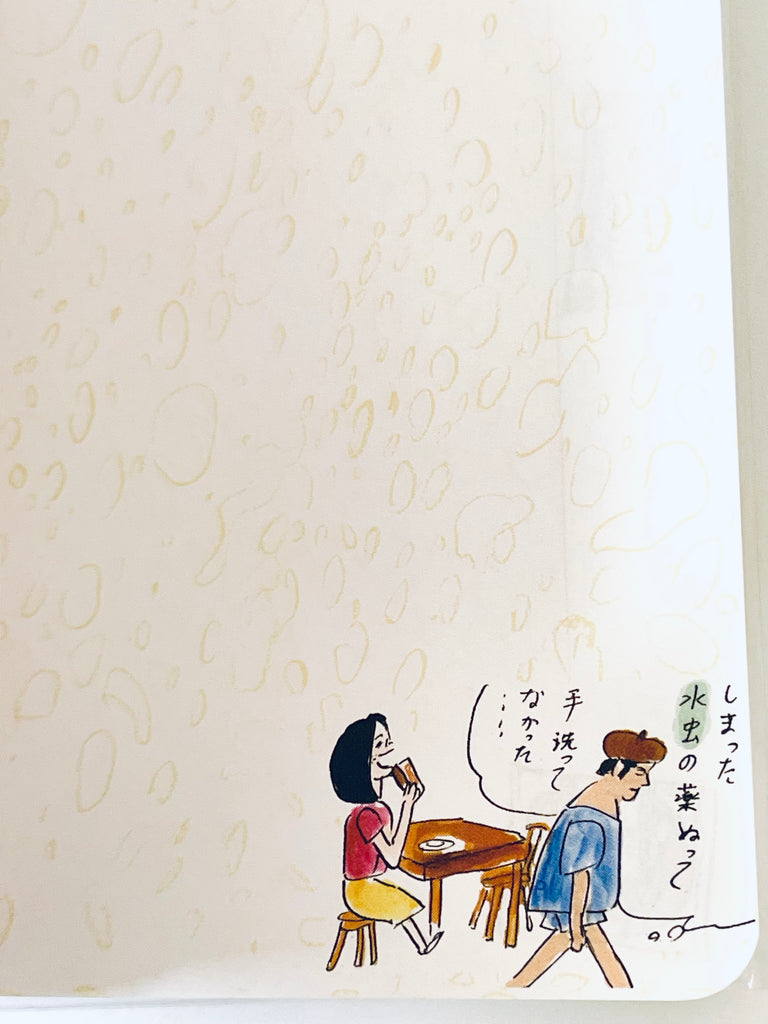 しまった
水虫の薬ぬって
手洗って
なかった
……